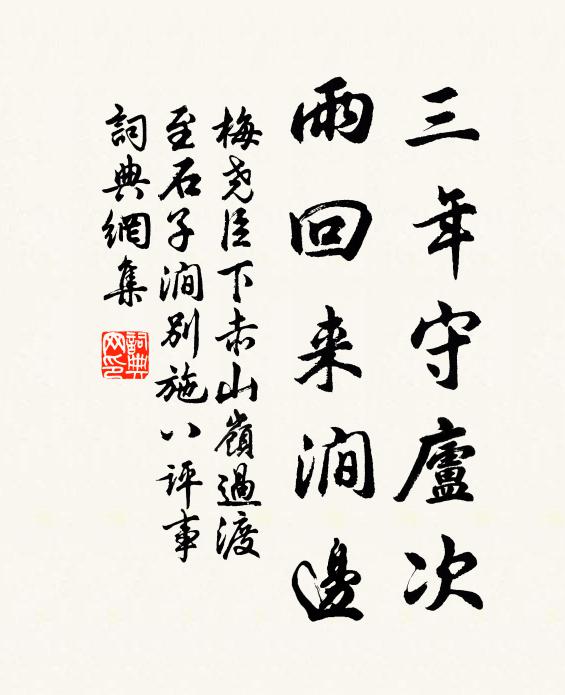 三年守廬次
兩回来澗邊
梅堯臣下赤山嶺過渡
至石子澗別施八评事
詞典網集
詞典網印